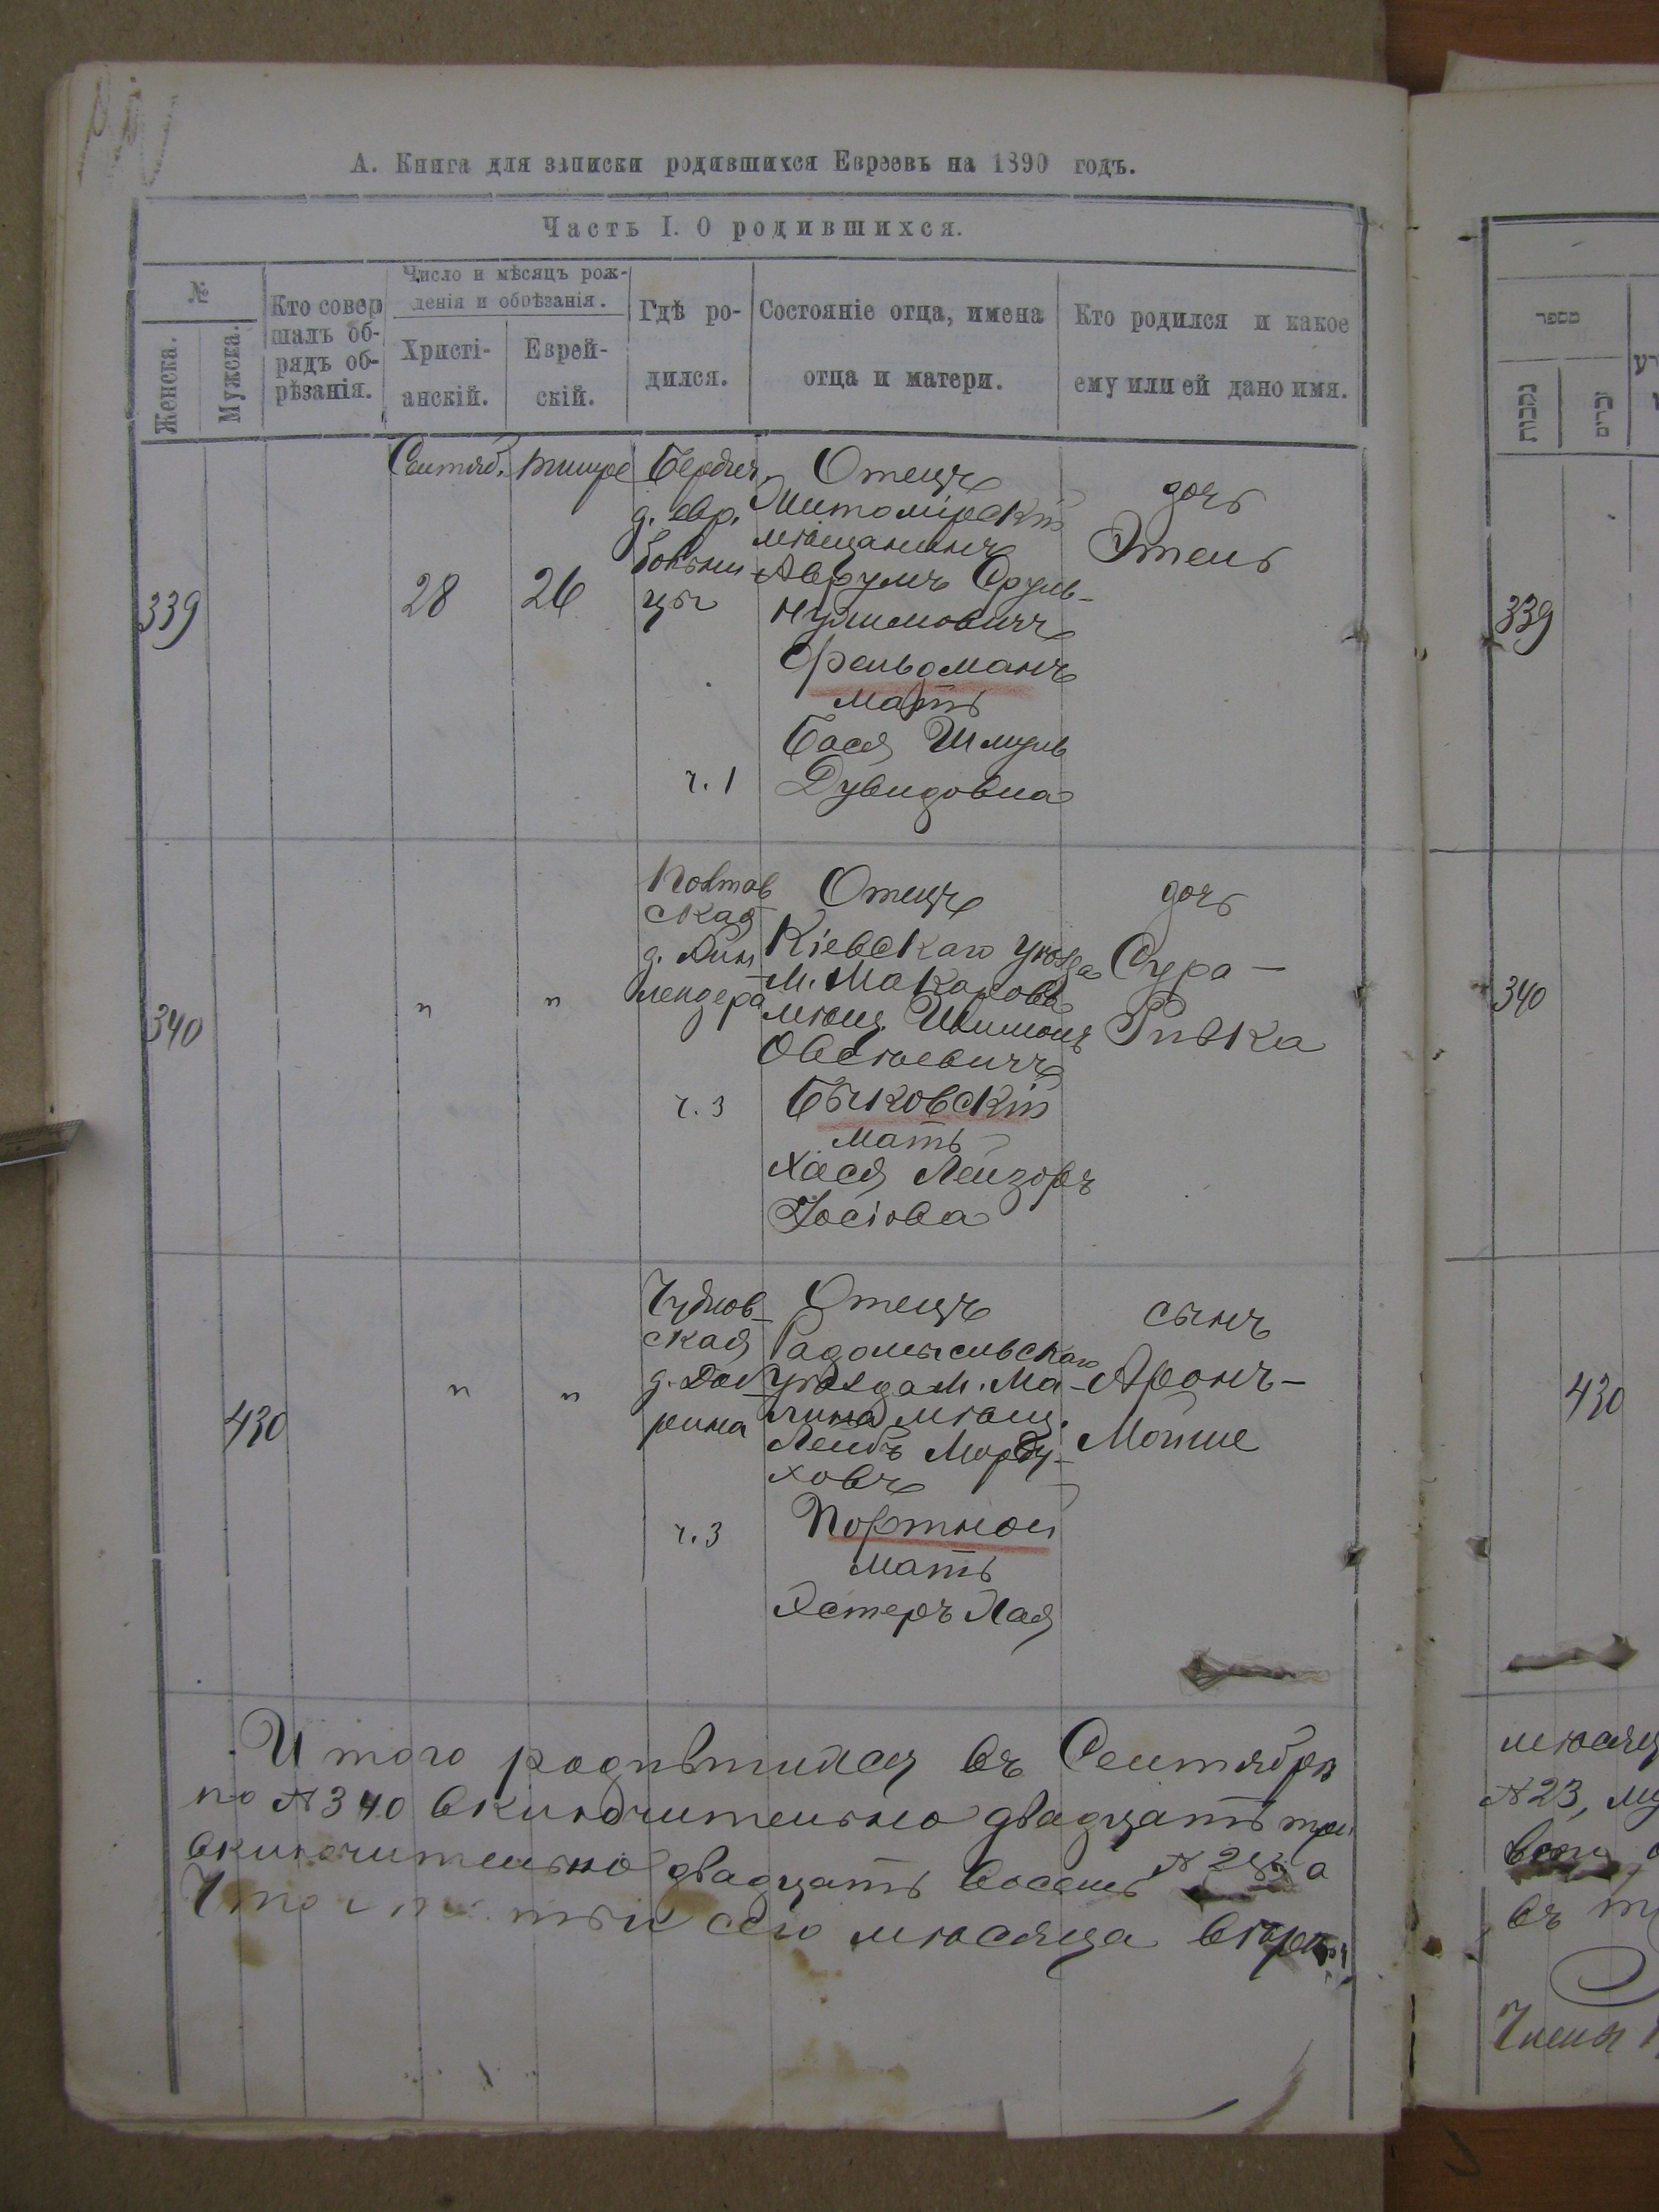 А. Книга для записки родившихся Евреевъ на 1890 годъ.
Часть I. О родившихся.
№
Женска.
Мужска.
Кто совер
шалъ об-
рядъ об-
рѣзанія.
Число и мѣсяцъ рож-
денія и обрѣзанія.
Христі-
анскій.
Еврей-
скій.
Гдѣ ро-
дился.
Состояніе отца, имена
отца и матери.
Кто родился и какое
ему или ей дано имя.
339
Сентяб.
28
Тишре
26
д. евр.
больни
цы
ч. 1
Отецъ
Житомірскій
мѣщанинъ
Аврумъ Сруль-
Фельдманъ
мать
Бася Шмуль
Дувидовна
дочь
Этель
340
"
"
Полтав
ская
ч. 3
Отецъ
Кіевскаго уѣзда
м. Макарова
мѣщ. Шлиома
Овсѣевичъ
Быковскій
мать
Хася Лейзоръ
Іосіова
дочь
Сура-
Ривка
430
"
"
Чуднов-
ская
ч. 3
Отецъ
Радомысльскаго
уѣзда м. Ма-
лина мѣщ.
Лейбъ Морду-
ховъ
Портной
мать
Эстеръ Хая
сынъ
Аронъ-
Мойше
Итого родившихся въ Сентябрѣ
по № 340 включительно двадцать три
включительно двадцать восемь № 28 а
сего мѣсяца
מספר
נקבות
זכרים
339
340
430
мѣсяц
№ 23, му
въ
Члены